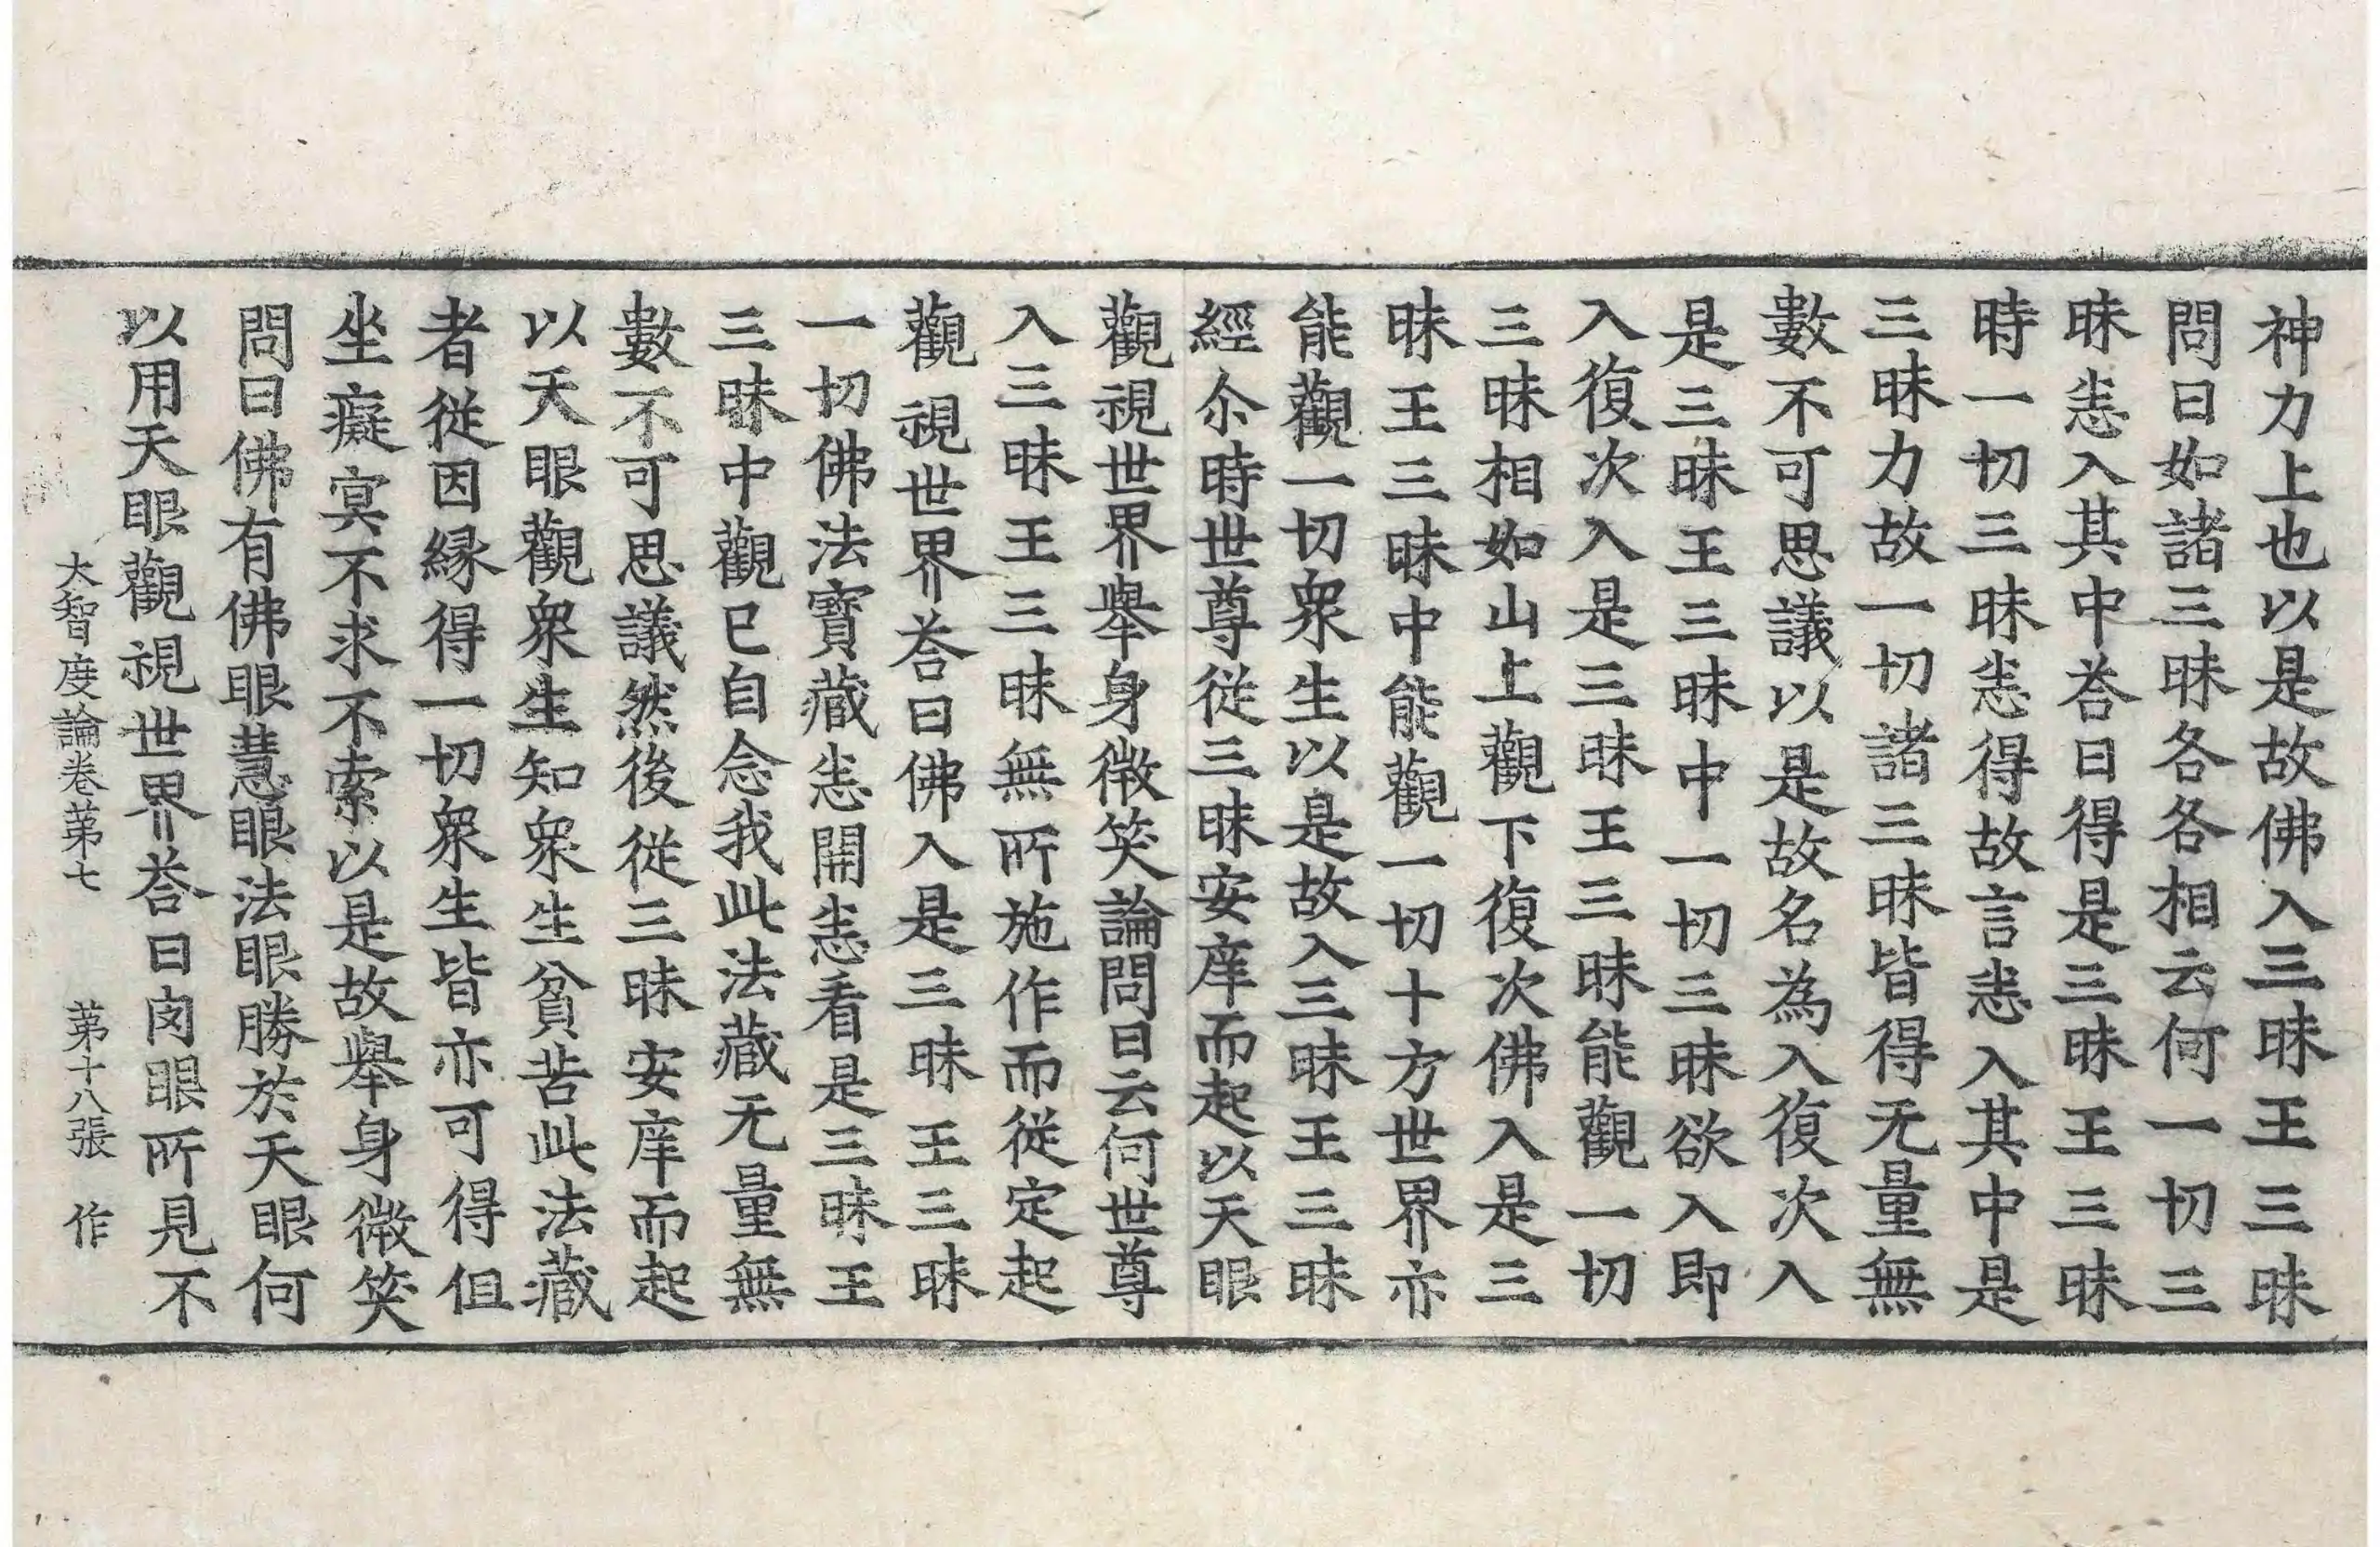 神力上也以是故佛入三昧王三昧
問曰如諸三昧各各相云何一切三
昧恙入其中荅曰得是三昧王三昧
時一切三昧恙得故言恙入其中是
三昧力故一切諸三昧皆得无量無
數不可思議以是故名為入復次入
是三昧王三昧中一切三昧欲入即
入復次入是三昧王三昧能觀一切
三昧相如山上觀下復次佛入是三
昧王三昧中能觀一切十方世界亦
能觀一切衆生以是故入三昧王三昧
經尒時世尊從三昧安庠而起以天眼
觀視世界舉身微笑論問曰云何世尊
入三昧王三昧無所施作而從定起
觀視世界荅曰佛入是三昧王三昧
一切佛法寶藏恙開恙看是三昧王
三昧中觀已自念我此法藏无量無
數不可思議然後從三昧安庠而起
以天眼觀衆生知衆生貧苦此法藏
者從因縁得一切衆生皆亦可得但
坐癡冥不求不索以是故舉身微笑
問曰佛有佛眼慧眼法眼勝於天眼何
以用天眼觀視世界荅曰肉眼所見不
大智度論卷苐七 苐十八張 作